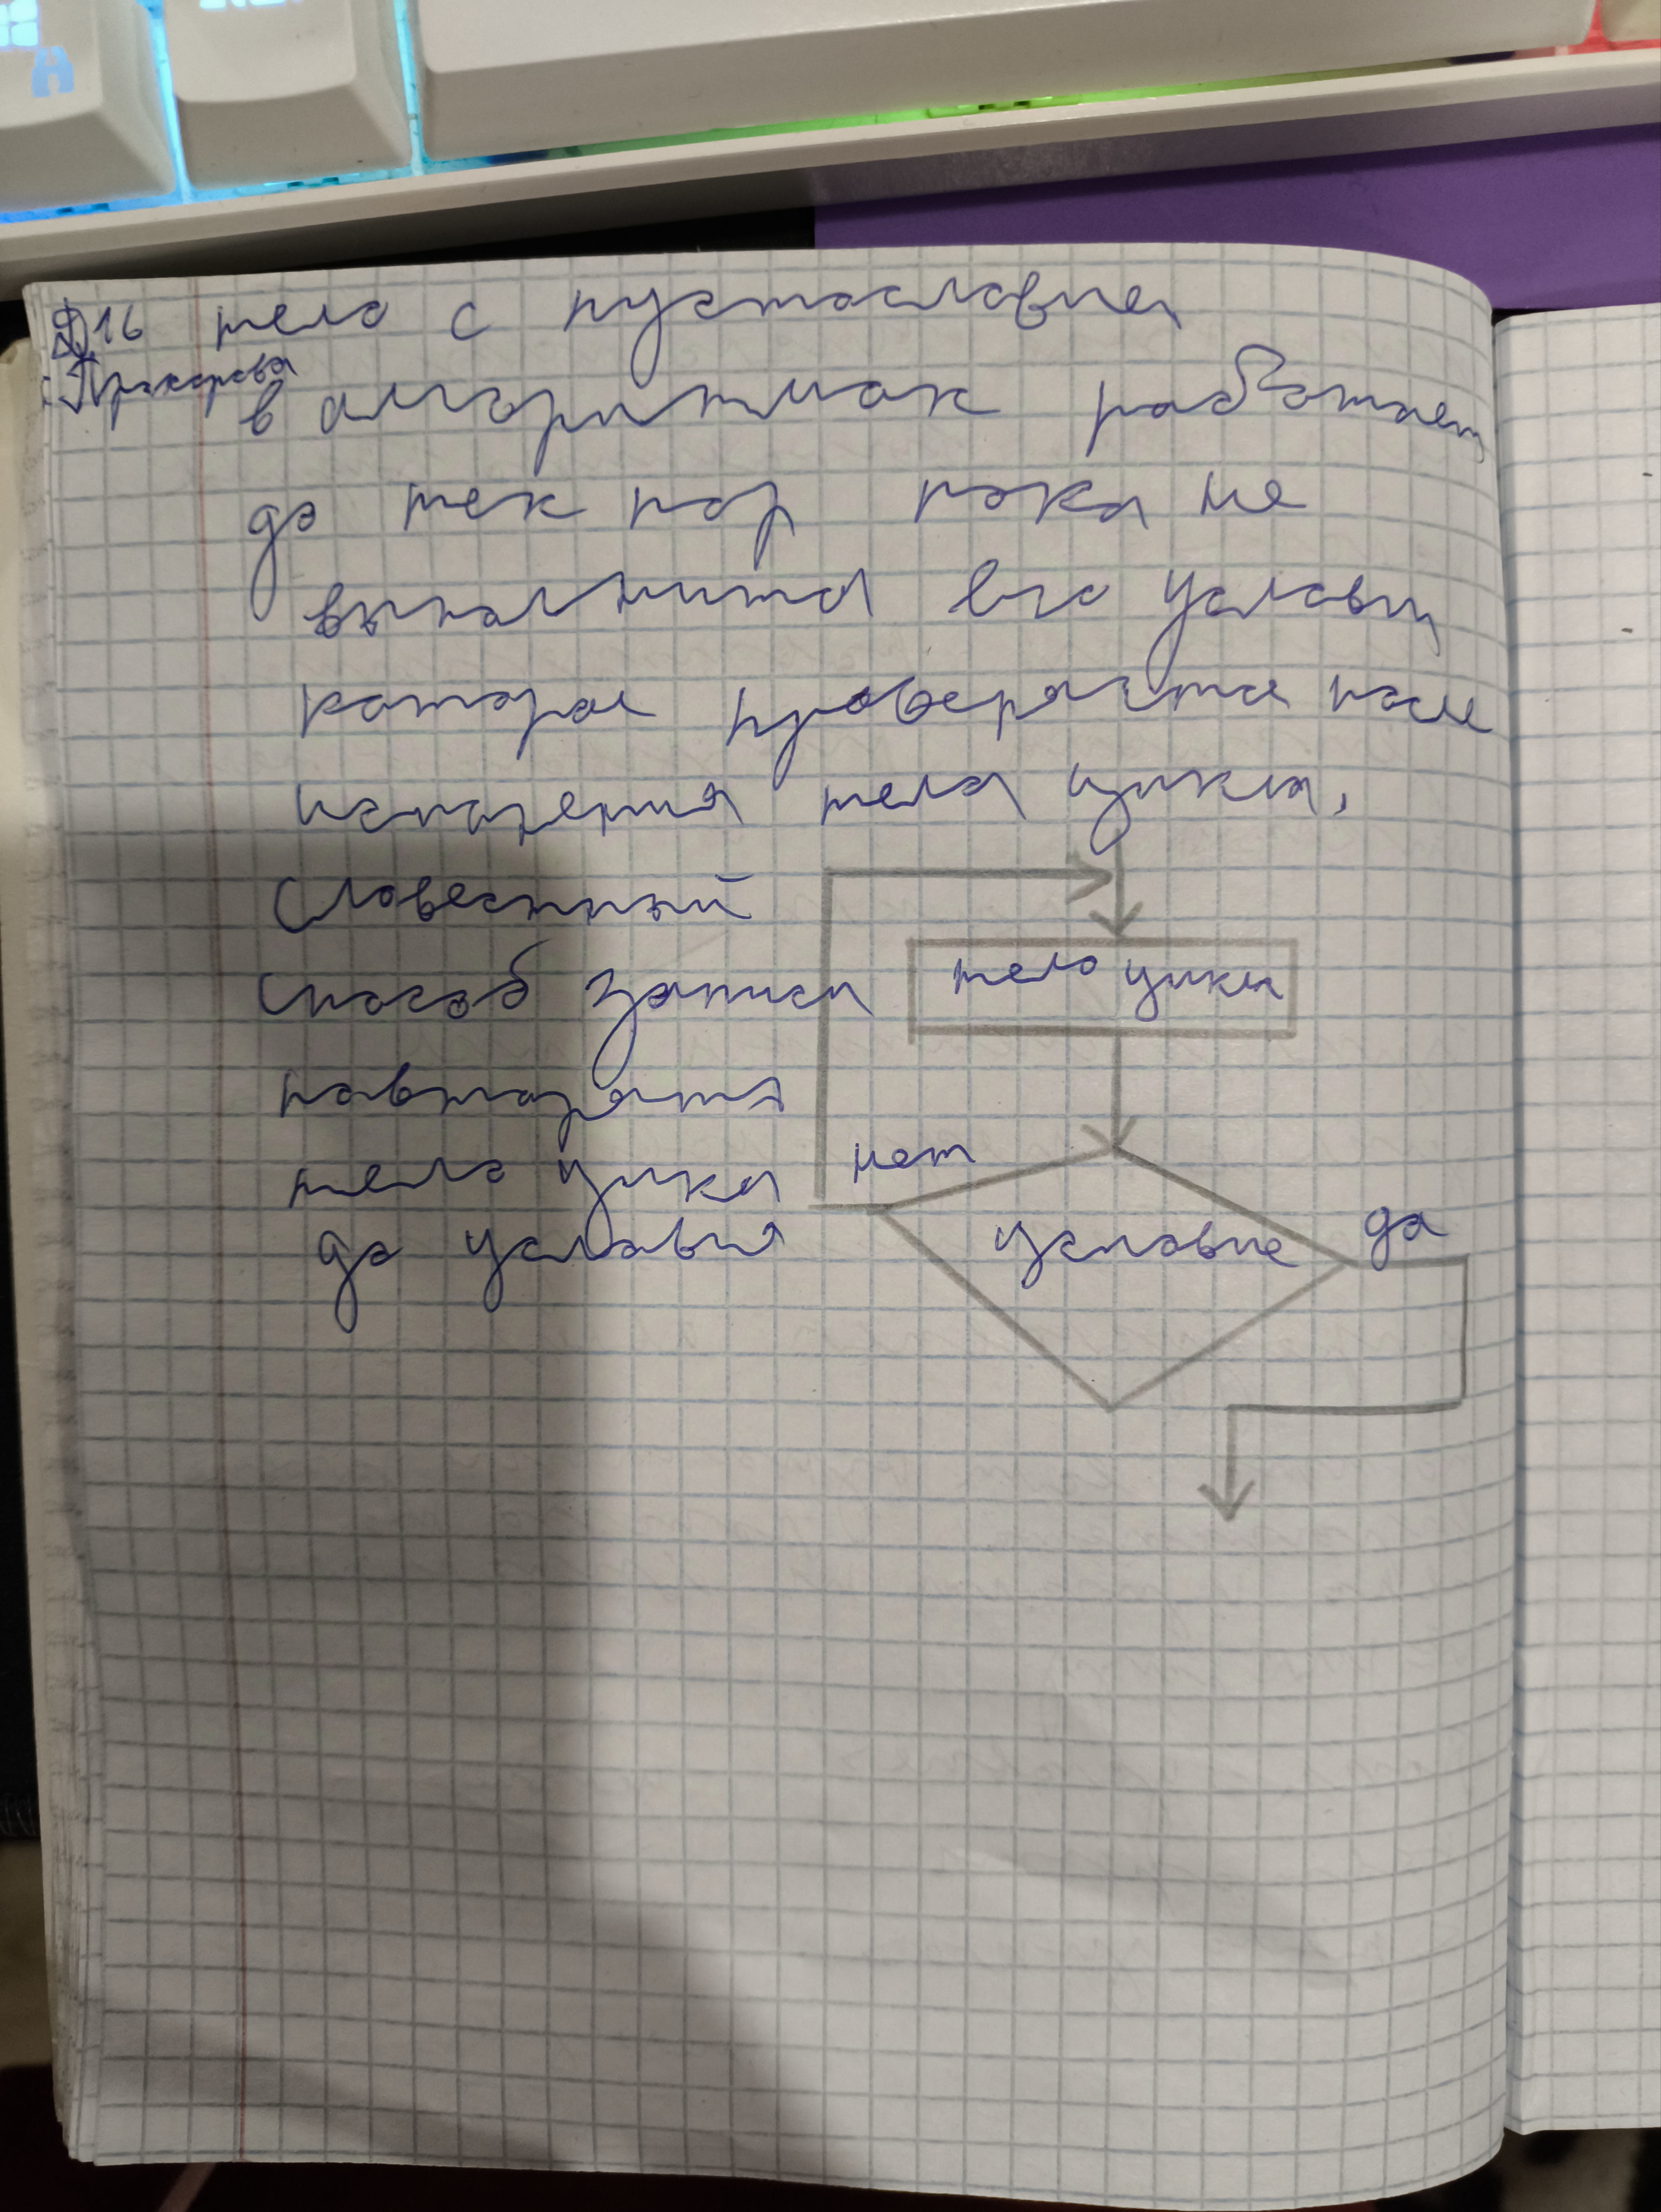 16 тело с пустословием
Прохорова
в алгоритмах работает
до тех пор пока не
выполнится его услови
которое проверяется после
тела цикла,
Словестный
способ записи
повторять
тело цикла
до условия
тело цикла
нет
условие
да